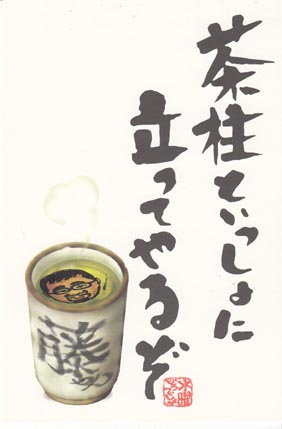 茶柱といっしょに
立ってやるぞ
藤